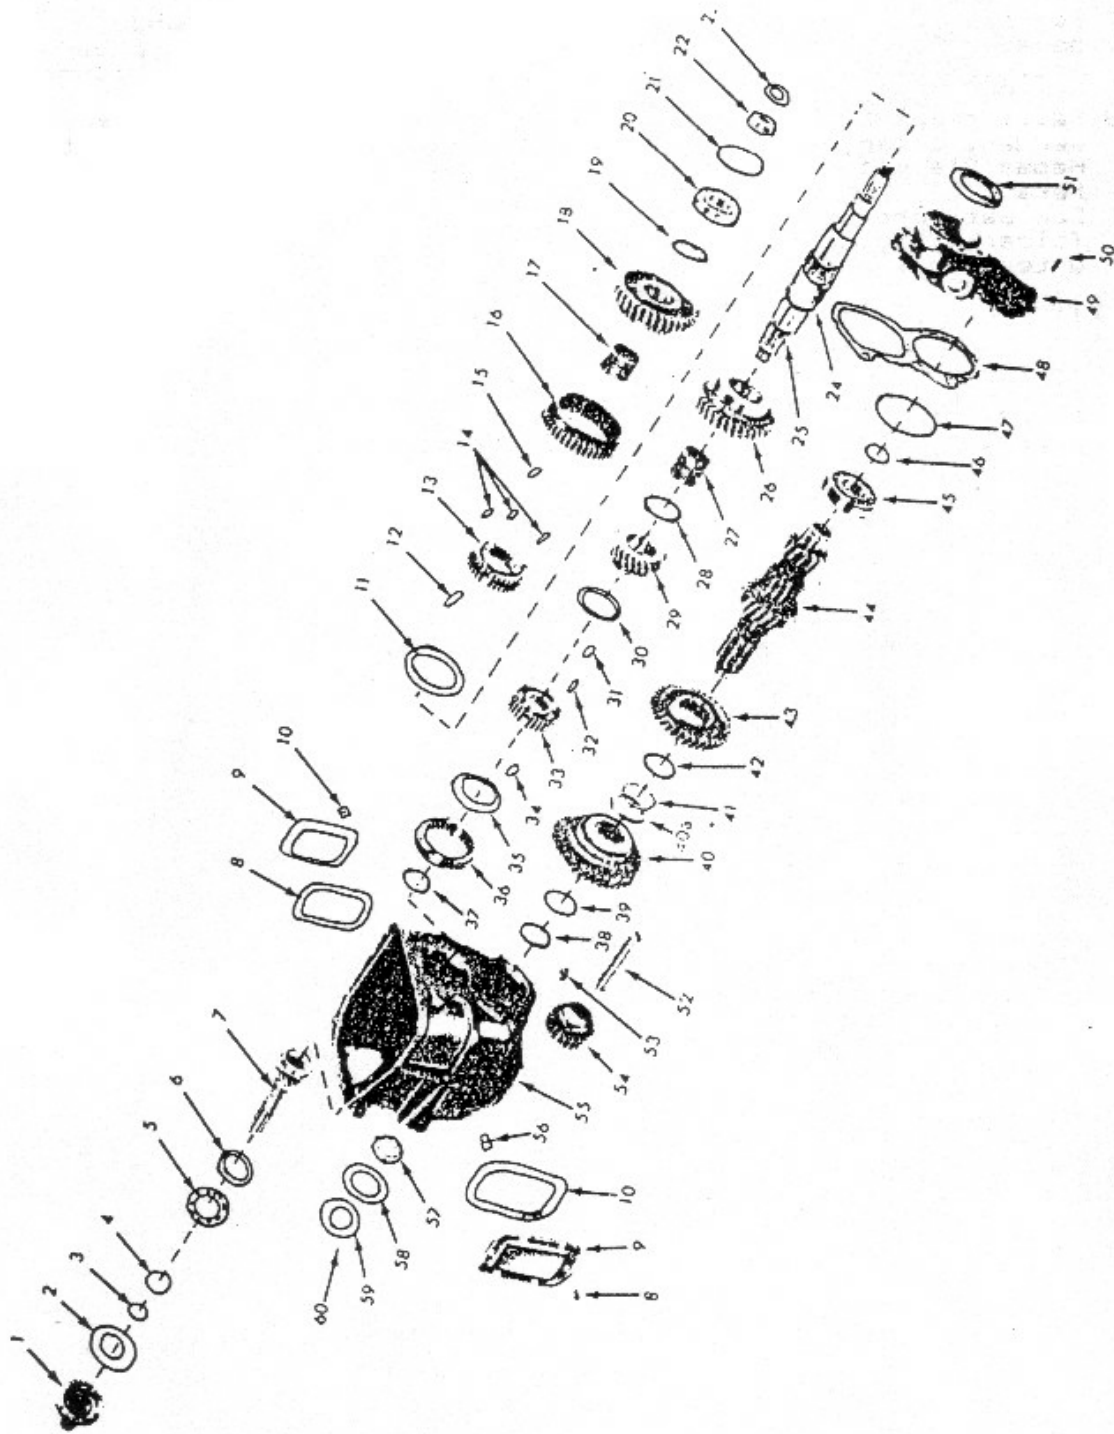 1
2
3
4
5
6
7
8
9
10
11
12
13
14
15
16
17
18
19
20
21
22
24
25
26
27
28
29
30
31
32
33
34
35
36
37
38
39
40
41
42
43
44
45
46
47
48
49
50
51
52
53
54
55
56
57
58
59
60
10
9
8